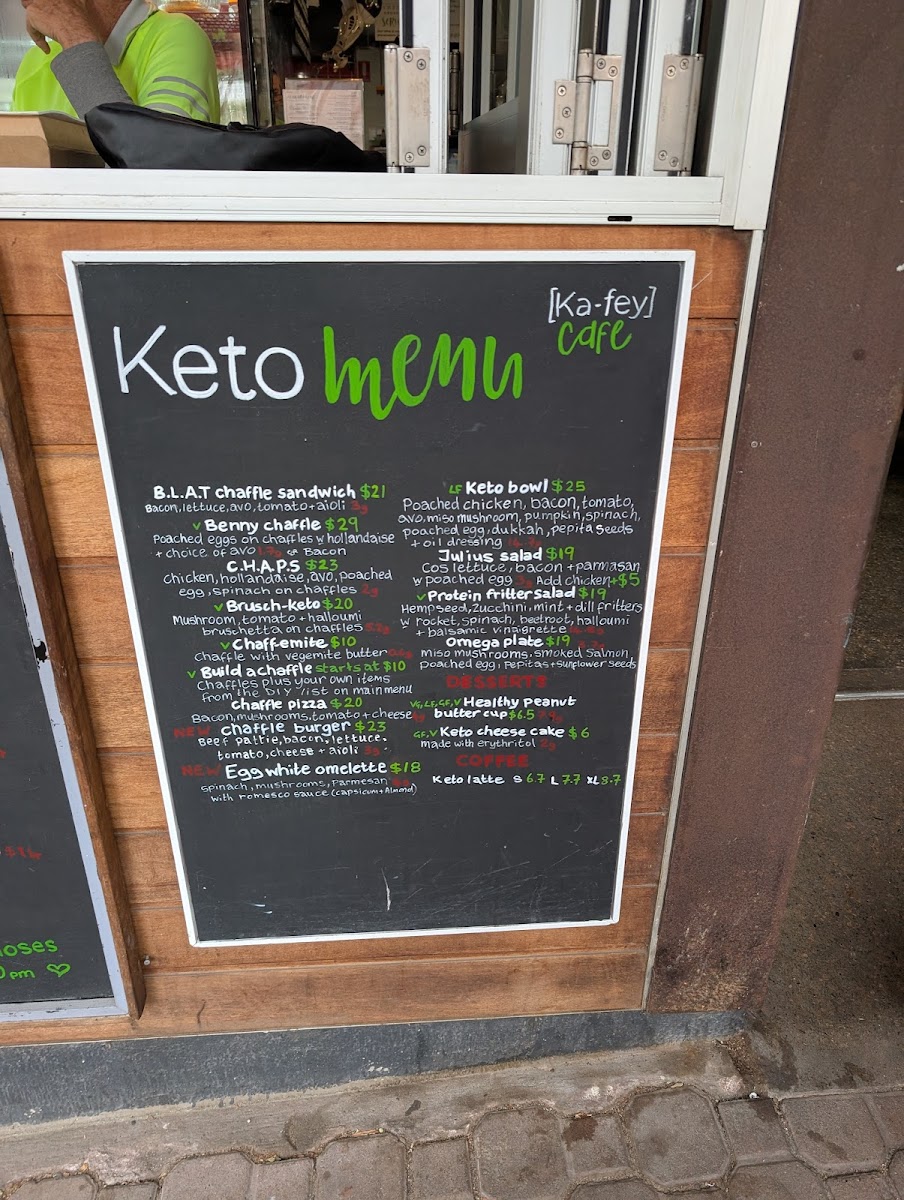 [Ka-fey]
cafe
Keto menu
B.L.A.T chaffle sandwich $21
Bacon, lettuce, avo, tomato + aioli 3g
V Benny chaffle $29
Poached eggs on chaffles w hollandaise
+ choice of avo 1.7g or Bacon
C.H.A.P.S $23
chicken, hollandaise, avo, poached
egg, spinach on chaffles 2g
V Brusch-keto $20
Mushroom, tomato + halloumi
bruschetta on chaffles 5.2g
V Chaff-emite $10
Chaffle with vegemite butter
V Build a chaffle starts at $10
Chaffles plus your own items
from the DIY list on main menu
Chaffle pizza $20
Bacon, mushrooms, tomato + cheese
NEW chaffle burger $23
Beef pattie, bacon, lettuce,
tomato, cheese + aioli 3g
NEW Egg white omelette $18
spinach, mushrooms, parmesan
with romesco sauce (capsicum + Almond)
LF Keto bowl $25
Poached chicken, bacon, tomato,
avo, miso mushroom, pumpkin, spinach,
poached egg, dukkah, pepita seeds
+ oil dressing
Julius salad $19
Cos lettuce, bacon + parmasan
w poached egg 3g Add chicken +$5
V Protein fritter salad $19
Hempseed, zucchini, mint + dill fritters
w rocket, spinach, beetroot, halloumi
+ balsamic vinaigrette
Omega plate $19
miso mushrooms, smoked salmon,
poached egg, pepitas + sunflower seeds
DESSERTS
VG, LF, GF, V Healthy peanut
butter cup $6.5
GF, V Keto cheese cake $6
made with erythritol 2g
COFFEE
Keto latte S 6.7 L 7.7 XL 8.7
oses
pm